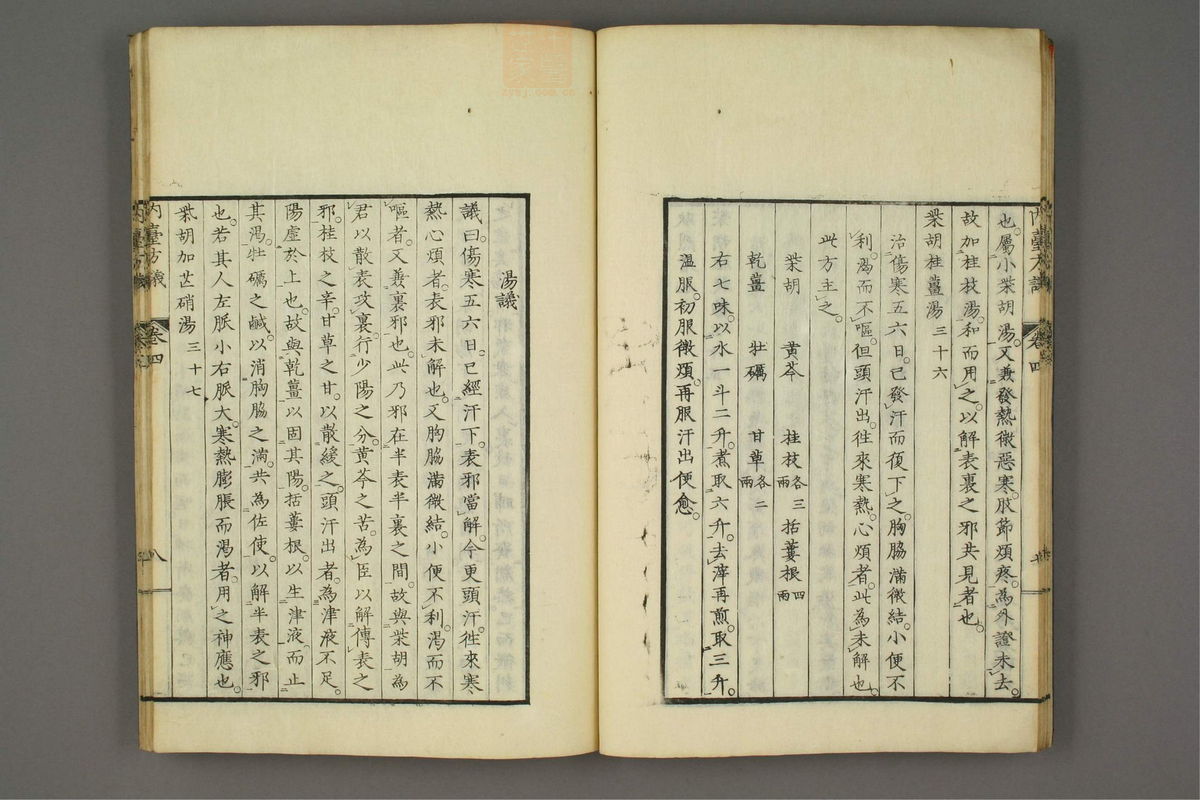 也。屬小柴胡湯。又兼發熱微惡寒。肢節煩疼。為外證未去。
故加桂枝湯。和而用之。以解表裏之邪共見者也。
柴胡桂薑湯 三十六
治傷寒五六日。已發汗而復下之。胸脇滿微結。小便不
利。渴而不嘔。但頭汗出。徃來寒熱。心煩者。此為未解也
此方主之。
柴胡 黃芩 桂枝各三兩 括蔞根四兩
乾薑 牡礪 甘草各二兩
右七味。以水一斗二升。煮取六升。去滓再煎。取三升。
溫服。初服微煩。再服汗出便愈。
湯議
議曰。傷寒五六日。已經汗下。表邪當解。今更頭汗。徃來寒
熱心煩者。表邪未解也。又胸脇滿微結。小便不利。渴而不
嘔者。又兼裏邪也。此乃邪在半表半裏之間。故與柴胡為
君以散表攻裏行少陽之分。黃芩之苦。為臣以解傳表之
邪。桂枝之辛。甘草之甘。以散緩之。頭汗出者。為津液不足。
陽虛於上也。故與乾薑以固其陽。括蔞根。以生津液。而止
其渴。牡礪之鹹。以消胸脇之滿。共為佐使。以解半表之邪
也。若其人左脈小右脈大。寒熱膨脹而渴者。用之神應也。
柴胡加芒硝湯 三十七
內臺方議 卷四 八